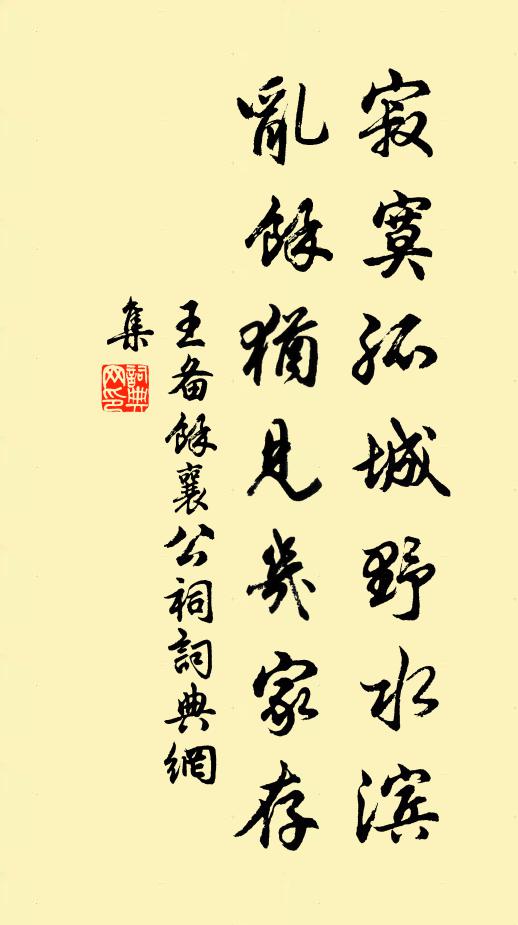 寂寞孤城野水滨
亂餘猶見幾家存
王备餘襄公祠詞典網
集
詞典网印